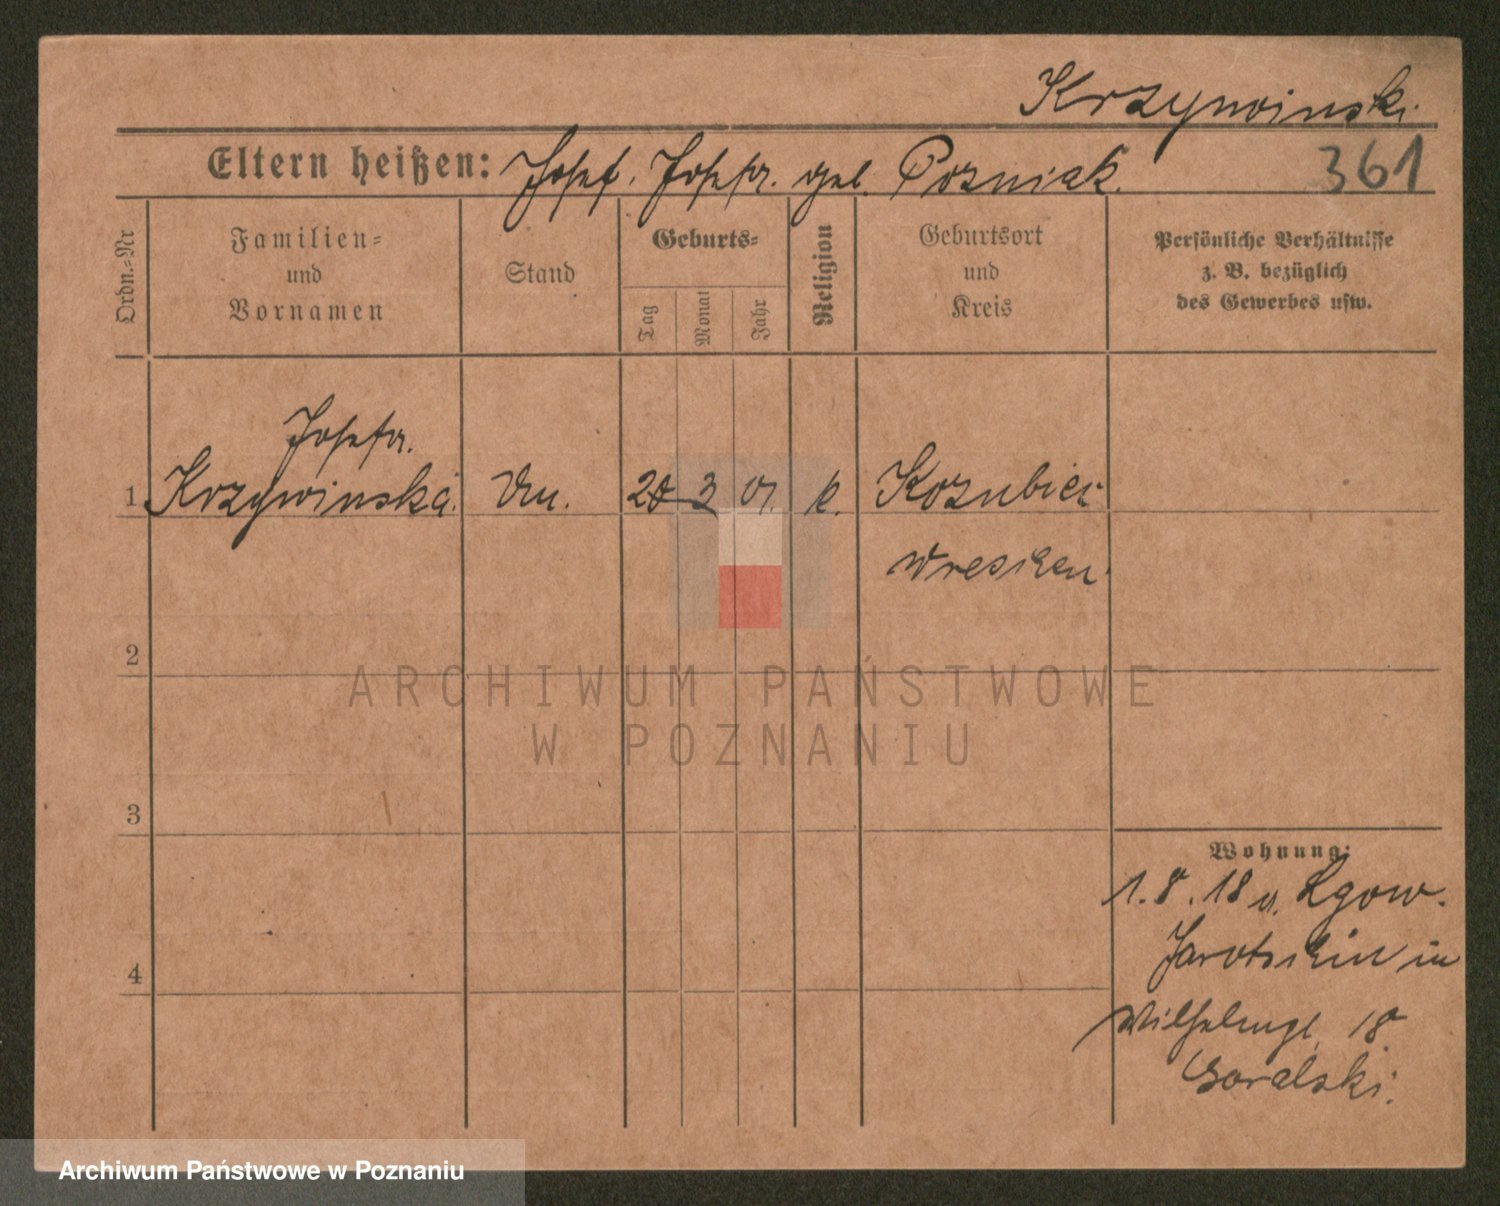 Krzywinski.
Eltern heißen: Josef. Josefa. geb. Pozniak.
361
Ordn.-Nr
Familien-
und
Vornamen
Stand
Geburts-
Tag
Monat
Jahr
Religion
Geburtsort
und
Kreis
Persönliche Verhältnisse
z. B. bezüglich
des Gewerbes usw.
Josefa.
1 Krzywinska. 3 01. k. Kozubiec
Wreschen.
2
ARCHIWUM PAŃSTWOWE
W POZNANIU
3
Wohnung:
1.8.18 v. Lgow.
Jarotschin in
4
Wilhelmpl. 18.
Goralski.
Archiwum Państwowe w Poznaniu